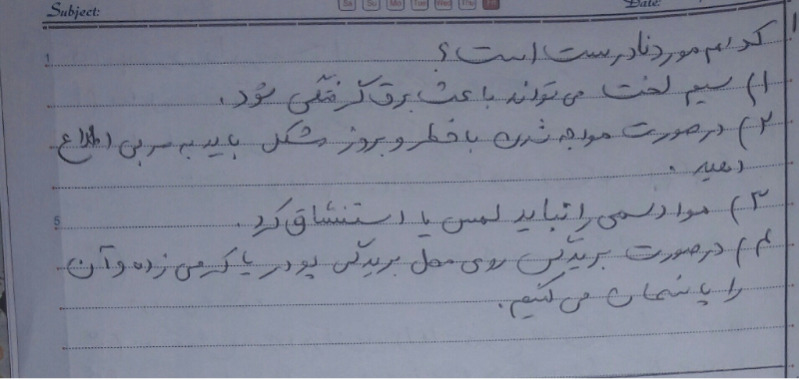 Subject:
Sa Su Mo Tue Wed Thu Fri
Date:
1
کدام مورد نادرست است؟
۱) سیم لخت می‌تواند باعث برق گرفتگی شود.
۲) درصورت مواجه شدن با خطر و بروز مشکل باید به مربی اطلاع
دهید.
5
۳) مواد سمی را نباید لمس یا استنشاق کرد.
۴) درصورت بریدگی روی محل بریدگی پودر یا کرمی زده و آن
را پانسمان می‌کنیم.